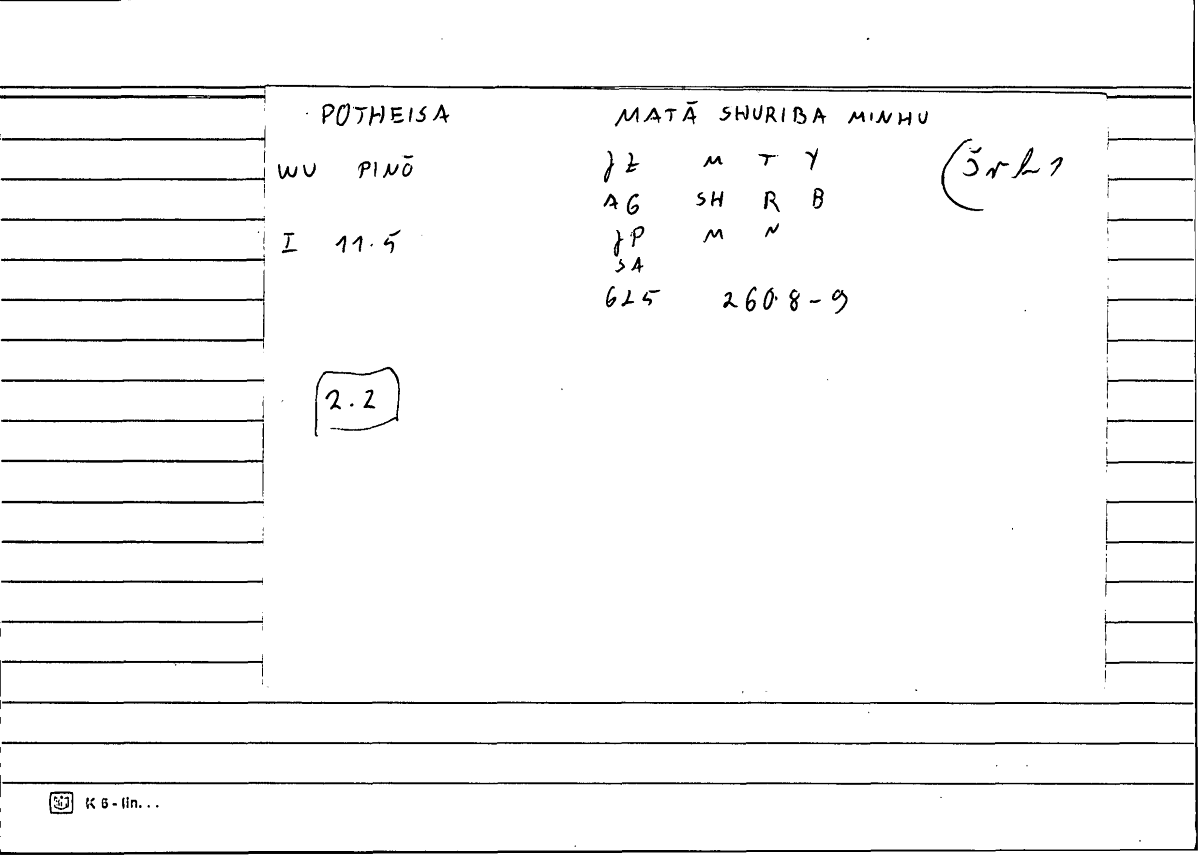 POTHEISA MATĀ SHURIBA MINHU
WU PINŌ JZ M T Y
AG SH R B
I 11.5 JP M N
SA
625 260.8-9
2.2
K 6-lin...